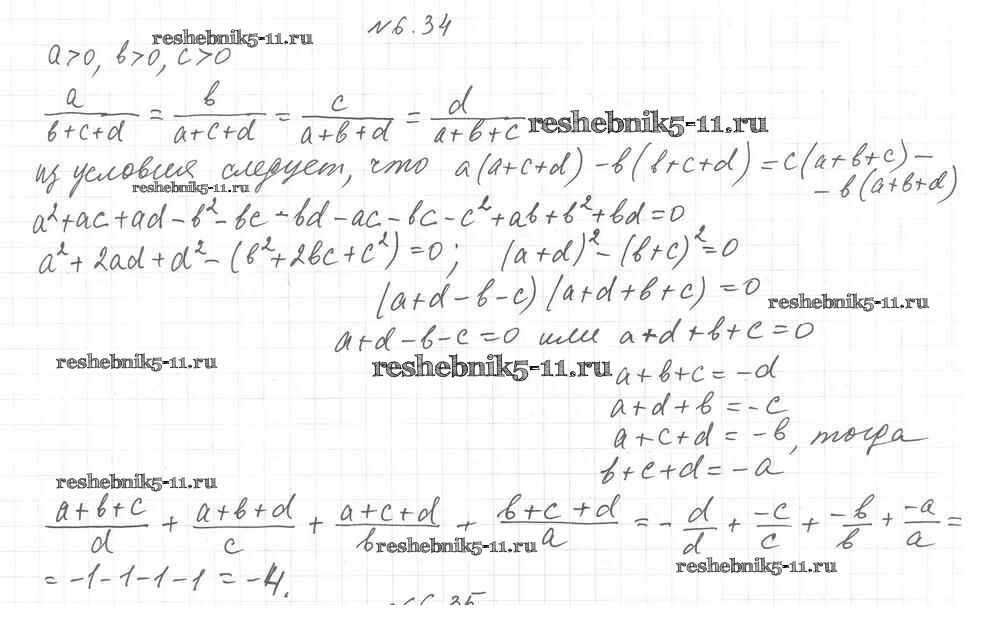 №6.34
reshebnik5-11.ru
a>0, b>0, c>0
a/(b+c+d) = b/(a+c+d) = c/(a+b+d) = d/(a+b+c) reshebnik5-11.ru
из условия следует, что a(a+c+d)-b(b+c+d)=c(a+b+c)-
reshebnik5-11.ru
-b(a+b+d)
a²+ac+ad-b²-bc-bd-ac-bc-c²+ab+b²+bd=0
a²+2ad+d²-(b²+2bc+c²)=0; (a+d)²-(b+c)²=0
(a+d-b-c)(a+d+b+c)=0
reshebnik5-11.ru
a+d-b-c=0 или a+d+b+c=0
reshebnik5-11.ru
reshebnik5-11.ru
a+b+c=-d
a+d+b=-c
a+c+d=-b, тогда
b+c+d=-a
reshebnik5-11.ru
(a+b+c)/d + (a+b+d)/c + (a+c+d)/b + (b+c+d)/a = -d/d + -c/c + -b/b + -a/a =
reshebnik5-11.ru
reshebnik5-11.ru
=-1-1-1-1=-4.